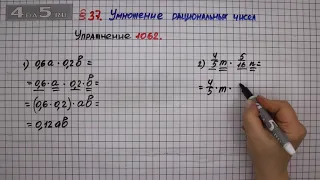 4auk5.ru
§ 37. Умножение рациональных чисел
Упражнение 1062.
1) 0,6a · 0,2b =
= 0,6·a · 0,2·b =
= (0,6·0,2)·ab =
= 0,12ab
2) 4/5 m · 5/16 n =
= 4/5 · m ·